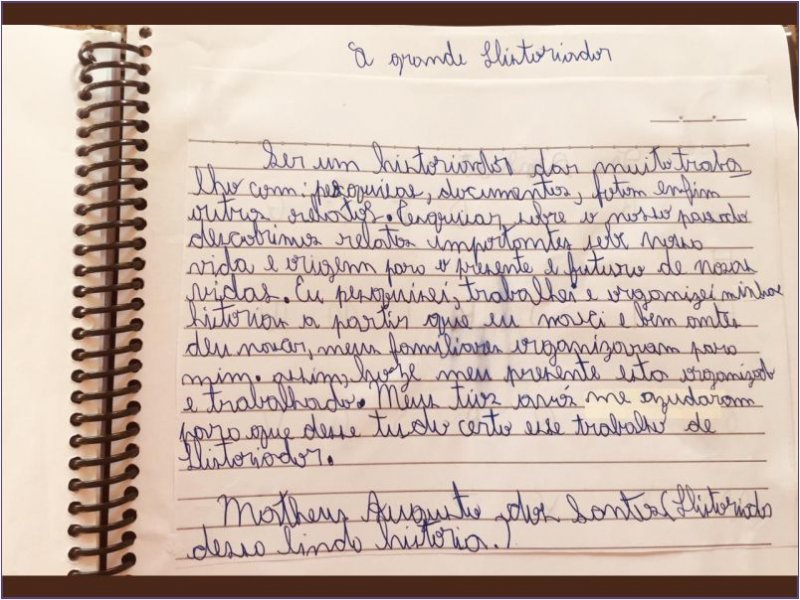 A grande Historiador
Ser um historiador dar muito traba
lho com: pesquisas, documentos, fotos enfim
outros relatos. Esquisar sobre o nosso passado
descobrimos relatos importantes sobr nossa
vida e origem para o presente e futuro de nossas
vidas. Eu pesquisei, trabalhei e organizei minhas
historias a partir que eu nasci e bem antes
deu nascer, meus familiares organizaram para
mim. assim, hoje meu presente esta organizado
e trabalhado. Meus tios avós me ajudaram
para que desse tudo certo esse trabalho de
Historiador.
Matheus Augusto dos Santos (Historiador
dessa linda historia.)